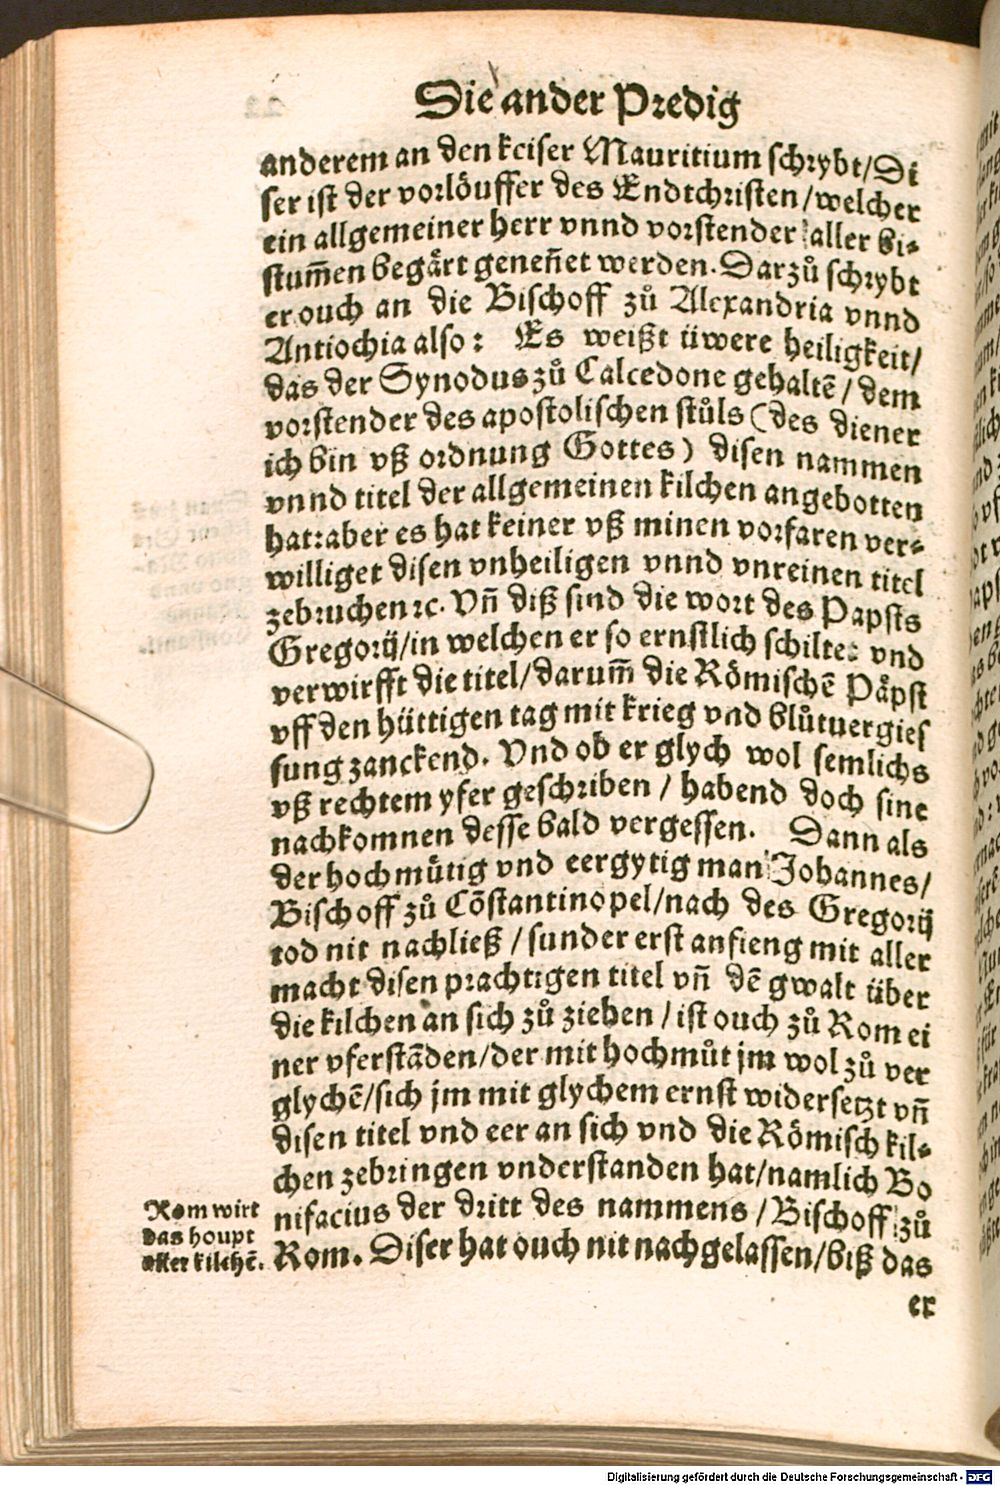 Die ander Predig
anderem an den keiser Mauritium schrybt/Di
ser ist der vorlöuffer des Endtchristen/welcher
ein allgemeiner herr vnnd vorstender aller bi⸗
stum̄en begärt geneñet werden. Darzů schrybt
er ouch an die Bischoff zů Alexandria vnnd
Antiochia also: Es weißt üwere heiligkeit/
das der Synodus zů Calcedone gehaltē/dem
vorstender des apostolischen stůls (des diener
ich bin vß ordnung Gottes) disen nammen
vnnd titel der allgemeinen kilchen angebotten
hat: aber es hat keiner vß minen vorfaren ver⸗
williget disen vnheiligen vnnd vnreinen titel
zebruchen ꝛc. Vñ diß sind die wort des Papsts
Gregorij/in welchen er so ernstlich schilte: vnd
verwirfft die titel/darum̄ die Römischē Päpst
vff den hüttigen tag mit krieg vnd blůtuergies
sung zanckend. Vnd ob er glych wol semlichs
vß rechtem yfer geschriben / habend doch sine
nachkomnen desse bald vergessen. Dann als
der hochmütig vnd eergytig man Johannes/
Bischoff zů Cōstantinopel/nach des Gregorij
tod nit nachließ / sunder erst anfieng mit aller
macht disen prachtigen titel vñ dē gwalt über
die kilchen an sich zů ziehen / ist ouch zů Rom ei
ner vferstāden/der mit hochmůt jm wol zů ver
glychē/sich jm mit glychem ernst widersetzt vñ
disen titel vnd eer an sich vnd die Römisch kil⸗
chen zebringen vnderstanden hat/namlich Bo
nifacius der dritt des nammens / Bischoff zů
Rom. Diser hat ouch nit nachgelassen/biß das
er
Rom wirt
das houpt
aller kilchē.
Digitalisierung gefördert durch die Deutsche Forschungsgemeinschaft - DFG